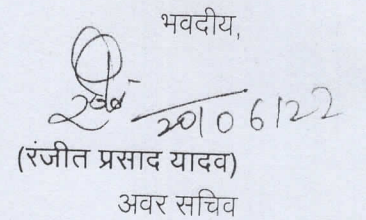 भवदीय,
20/06/22
(रंजीत प्रसाद यादव)
अवर सचिव